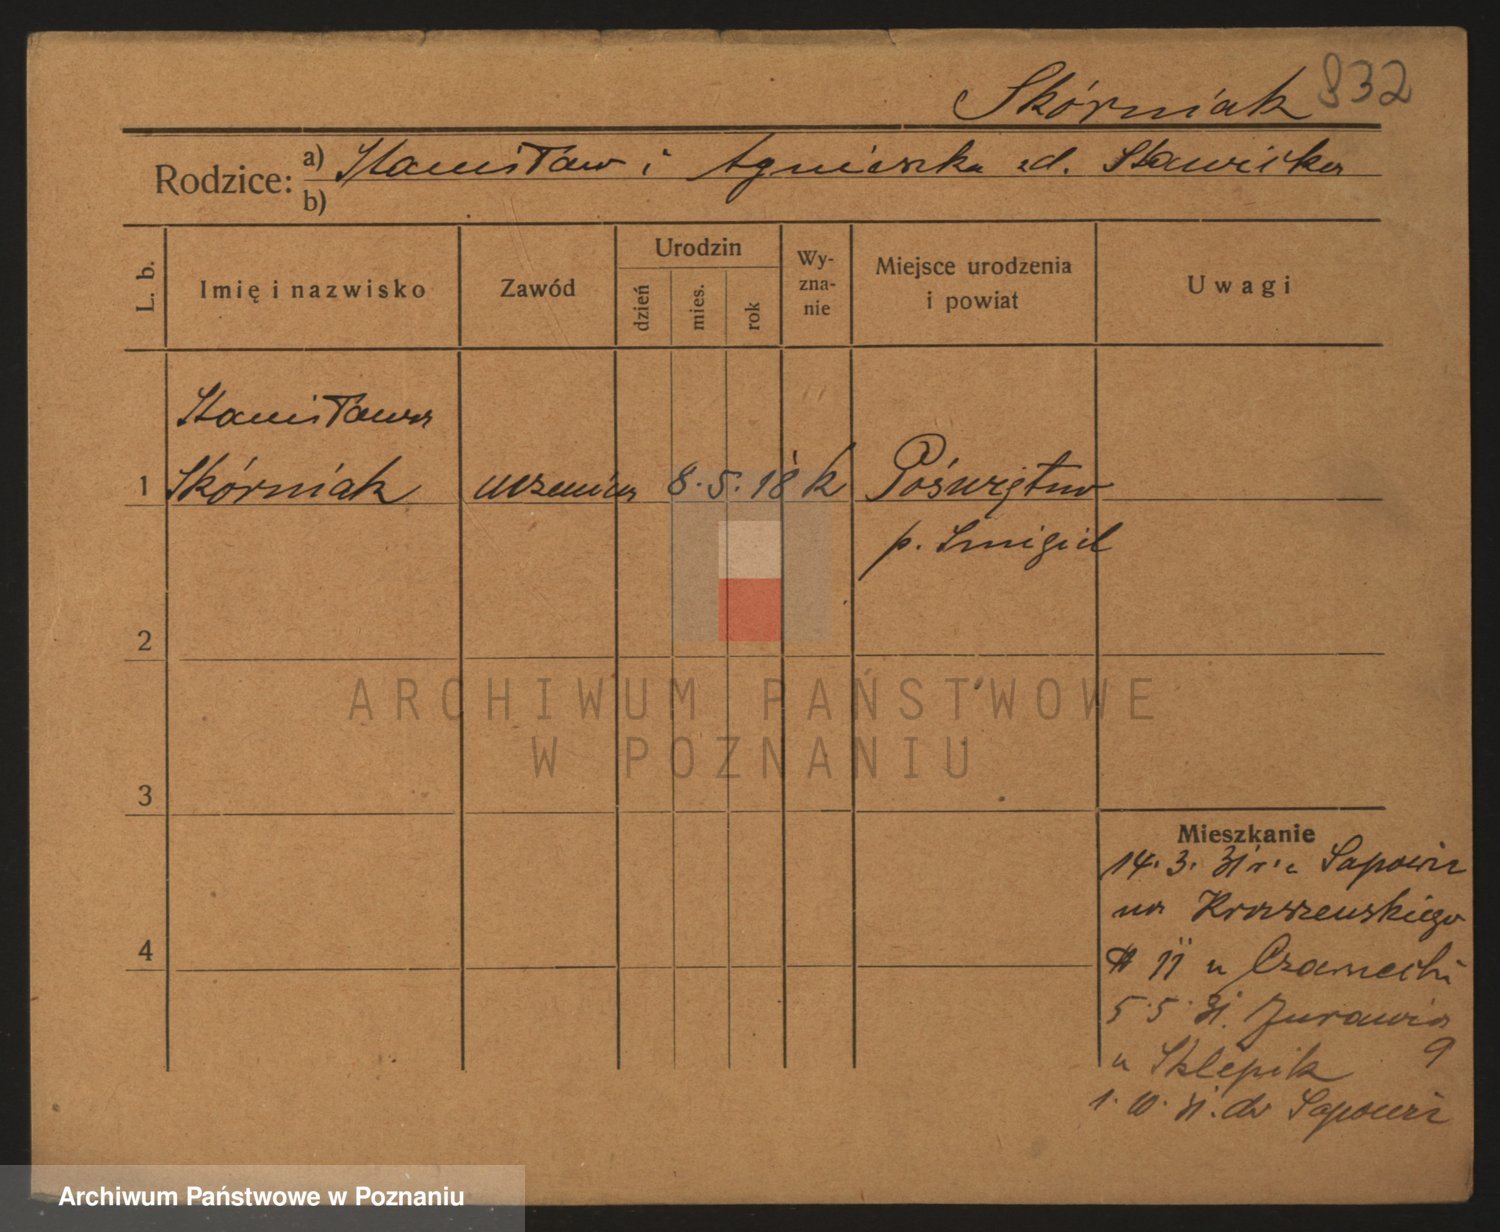 Skórniak 832
Rodzice: a) Stanisław i Agnieszka zd. Stawicka
b)
L. b. Imię i nazwisko Zawód Urodzin dzień mies. rok Wyznanie Miejsce urodzenia i powiat Uwagi
Stanisława
1 Skórniak uczenica 8. 5. 18 k Poświętno
p. Smigiel
2
3
4
Mieszkanie
14. 3. 31 r. z
na Kraszewskiego
11 u Czarnecki
5. 5. 31. Żurawia
9
u Sklepik
1. 10. 31. do
ARCHIWUM PAŃSTWOWE
W POZNANIU
Archiwum Państwowe w Poznaniu